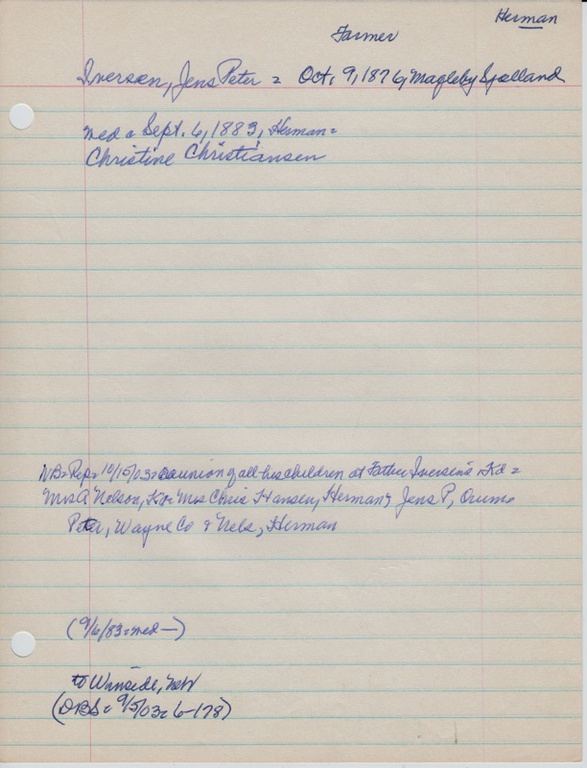 Herman
Farmer
Iversen, Jens Peter = Oct. 9, 1876, Magleby Sjolland
med = Sept. 6, 1883, Herman =
Christine Christiansen
NB = Rep = 10/15/03 = reunion of all his children at Father Iversen's Kd =
Mrs A Nelson, Kd = Mrs Chris Hansen, Herman, Jens P, Orum =
Peter, Wayne Co & Nels, Herman
(9/6/83 = med —)
to Winside, Neb
(DBS = 9/5/03 = 6-178)